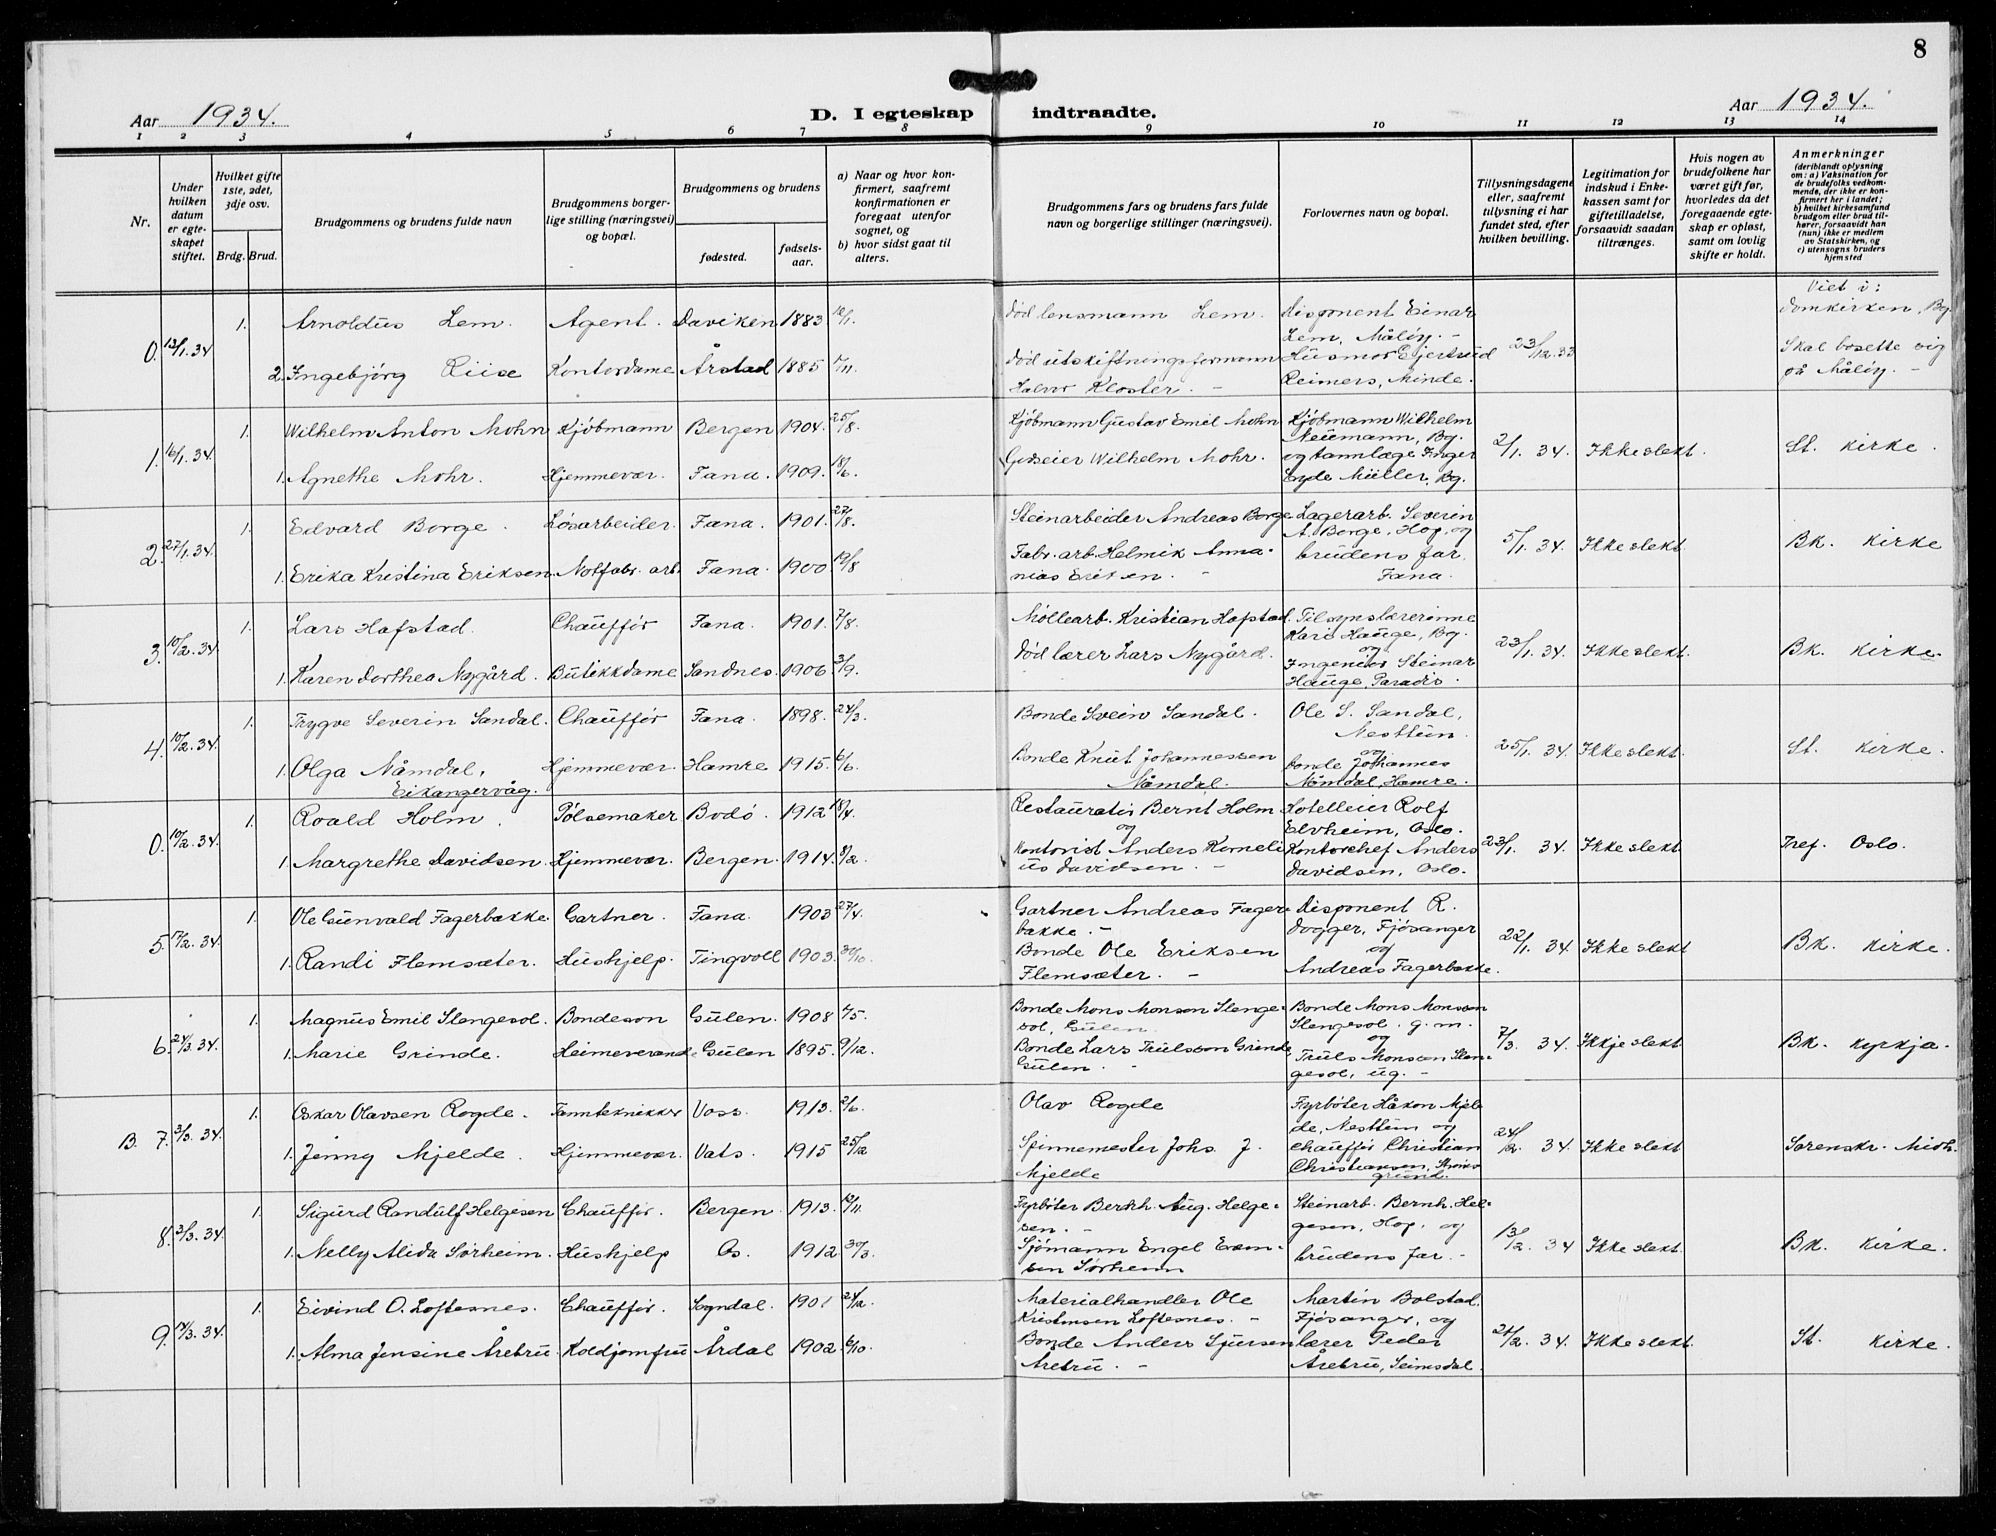 8
Aar 1934.
D. I egteskap indtraadte.
Aar 1934.
1 2 3 4 5 6 7 8 9 10 11 12 13 14
Nr.
Under hvilken datum er egteskapet stiftet.
Hvilket gifte 1ste, 2det, 3dje osv.
Brdg. Brud.
Brudgommens og brudens fulde navn
Brudgommens borgerlige stilling (næringsvei) og bopæl.
Brudgommens og brudens
fødested.
fødselsaar.
a) Naar og hvor konfirmert, saafremt konfirmationen er foregaat utenfor sognet, og
b) hvor sidst gaat til alters.
Brudgommens fars og brudens fars fulde navn og borgerlige stillinger (næringsvei).
Forlovernes navn og bopæl.
Tillysningsdagene eller, saafremt tillysning ei har fundet sted, efter hvilken bevilling.
Legitimation for indskud i Enkekassen samt for giftetilladelse, forsaavidt saadan tiltrænges.
Hvis nogen av brudefolkene har været gift før, hvorledes da det foregaaende egteskap er opløst, samt om lovlig skifte er holdt.
Anmerkninger
(deriblandt oplysning om: a) Vaksination for de brudefolks vedkommende, der ikke er konfirmert her i landet; b) hvilket kirkesamfund brudgom eller brud tilhører, forsaavidt han (hun) ikke er medlem av Statskirken, og c) utensogns bruders hjemsted
0. 13/1.34 1. Arnoldus Lem. Agent. Daviken 1883 Død lensmann Lem. Disponent Einar Lem, Måløy. - 23/12.33 Viet i: Domkirken, Bg
2. Ingebjørg Riise Kontordame Årstad 1885 Død utskiftningsformann Halvor Kloster. - Husmor Gjertrud Reimers, Minde. Skal bosette sig på Måløy. -
1. 16/1.34. 1. Wilhelm Anton Mohn Kjøbmann Bergen 1904. 25/8. Kjøbmann Gustav Emil Mohn Kjøbmann Wilhelm Neumann, Bg. 2/1. 34. Ikke slekt. St. kirke.
1. Agnethe Mohr. Hjemmevær. Fana. 1909. 18/6. Godseier Wilhelm Mohr. og tannlæge Inger Eyde Müller, Bg.
2. 27/1.34. 1. Edvard Borge. Løsarbeider. Fana. 1901. 27/8. Steinarbeider Andreas Borge Lagerarb. Severin A. Borge, Hop, og 5/1. 34. Ikke slekt. Bk. kirke
1. Erika Kristina Eriksen Notfabr. arb. Fana. 1900. 19/8 Fabr. arb. Helmik Annanias Eriksen. brudens far. Fana.
3. 10/2.34. 1. Lars Hafstad. Chauffør Fana. 1901. 7/8. Møllearb. Kristian Hafstad. Tilsynslærerinne Kari Hauge, Bg. og 23/1.34. Ikke slekt. Bk. kirke.
1. Karen Dorthea Nygård. Butikkdame Sandnes. 1906 3/9. Død lærer Lars Nygård. Ingeniør Steinar Hauge, Paradis.
4. 10/2.34. 1. Trygve Severin Sandal. Chauffør Fana. 1898. 24/3. Bonde Svein Sandal. Ole S. Sandal, Nesttun. og 25/1. 34. Ikke slekt. St. kirke.
1. Olga Nåmdal, Eikangervåg. Hjemmevær. Hamre 1915. 6/6. Bonde Knut Johannessen Nåmdal. bonde Johannes Nåmdal, Hamre.
0. 10/2.34. 1. Roald Holm. Pølsemaker Bodø. 1912 18/4. Restauratør Bernt Holm og Hotelleier Rolf Elvheim, Oslo. 23/1. 34. Ikke slekt. Tref. Oslo.
1. Margrethe Davidsen. Hjemmevær. Bergen. 1914. 8/2. Kontorist Anders Kornelius Davidsen. - Kontorchef Anders Davidsen, Oslo.
5. 17/2.34. 1. Ole Gunvald Fagerbakke. Gartner. Fana. 1903 27/4. Gartner Andreas Fagerbakke. - Disponent R. Dogger, Fjøsanger og 22/1. 34. Ikke slekt Bk. kirke.
1. Randi Flemsæter. Hushjelp. Tingvoll 1903. 30/10. Bonde Ole Eriksen Flemsæter. - Andreas Fagerbakke.
6. 24/3.34. 1. Magnus Emil Slengesol. Bondeson Gulen. 1908 Bonde Mons Monsen Slengesol, Gulen. Bonde Mons Monsson Slengesol. g.m. og 7/3. 34. Ikkje slekt. Bk. kyrkja.
1. Marie Grinde. Heimeverande Gulen 1895. 9/12. Bonde Lars Trulsson Grinde Gulen. - Truls Monsson Slengesol, ug. -
B. 7. 3/3.34. 1. Oskar Olavsen Rogde. Tanntekniker Voss. 1913. 2/6. Olav Rogde Fyrbøter Håkon Mjelde, Nesttun og 24/2. 34. Ikke slekt Sorenskr. Midh.
1. Jenny Mjelde. Hjemmevær. Vats. 1915 25/12 Spinnemester Johs. J. Mjelde chauffør Christian Christiansen,
8. 3/3.34. 1. Sigurd Randulf Helgesen Chauffør. Bergen. 1913. Fyrbøter Bernh. Aug. Helgesen. - Steinarb. Bernh. Helgesen, Hop, og 13/2. 34 Ikke slekt. Bk. kirke.
1. Nelly Alida Sørheim. Hushjelp Os. 1912 30/3. Sjømann Engel Sørheim brudens far. -
9. 34. 1. Eivind O. Loftesnes. Chauffør. Sogndal. 1901 24/12. Materialhandler Ole Kristensen Loftesnes. - Martin Bolstad. Fjøsanger, og 34. Ikke slekt. St. kirke.
1. Alma Jensine Årebru Koldjomfru Årdal 1902 6/10. Bonde Anders Sjursen Årebru. - lærer Peder Årebru, Seimsdal.